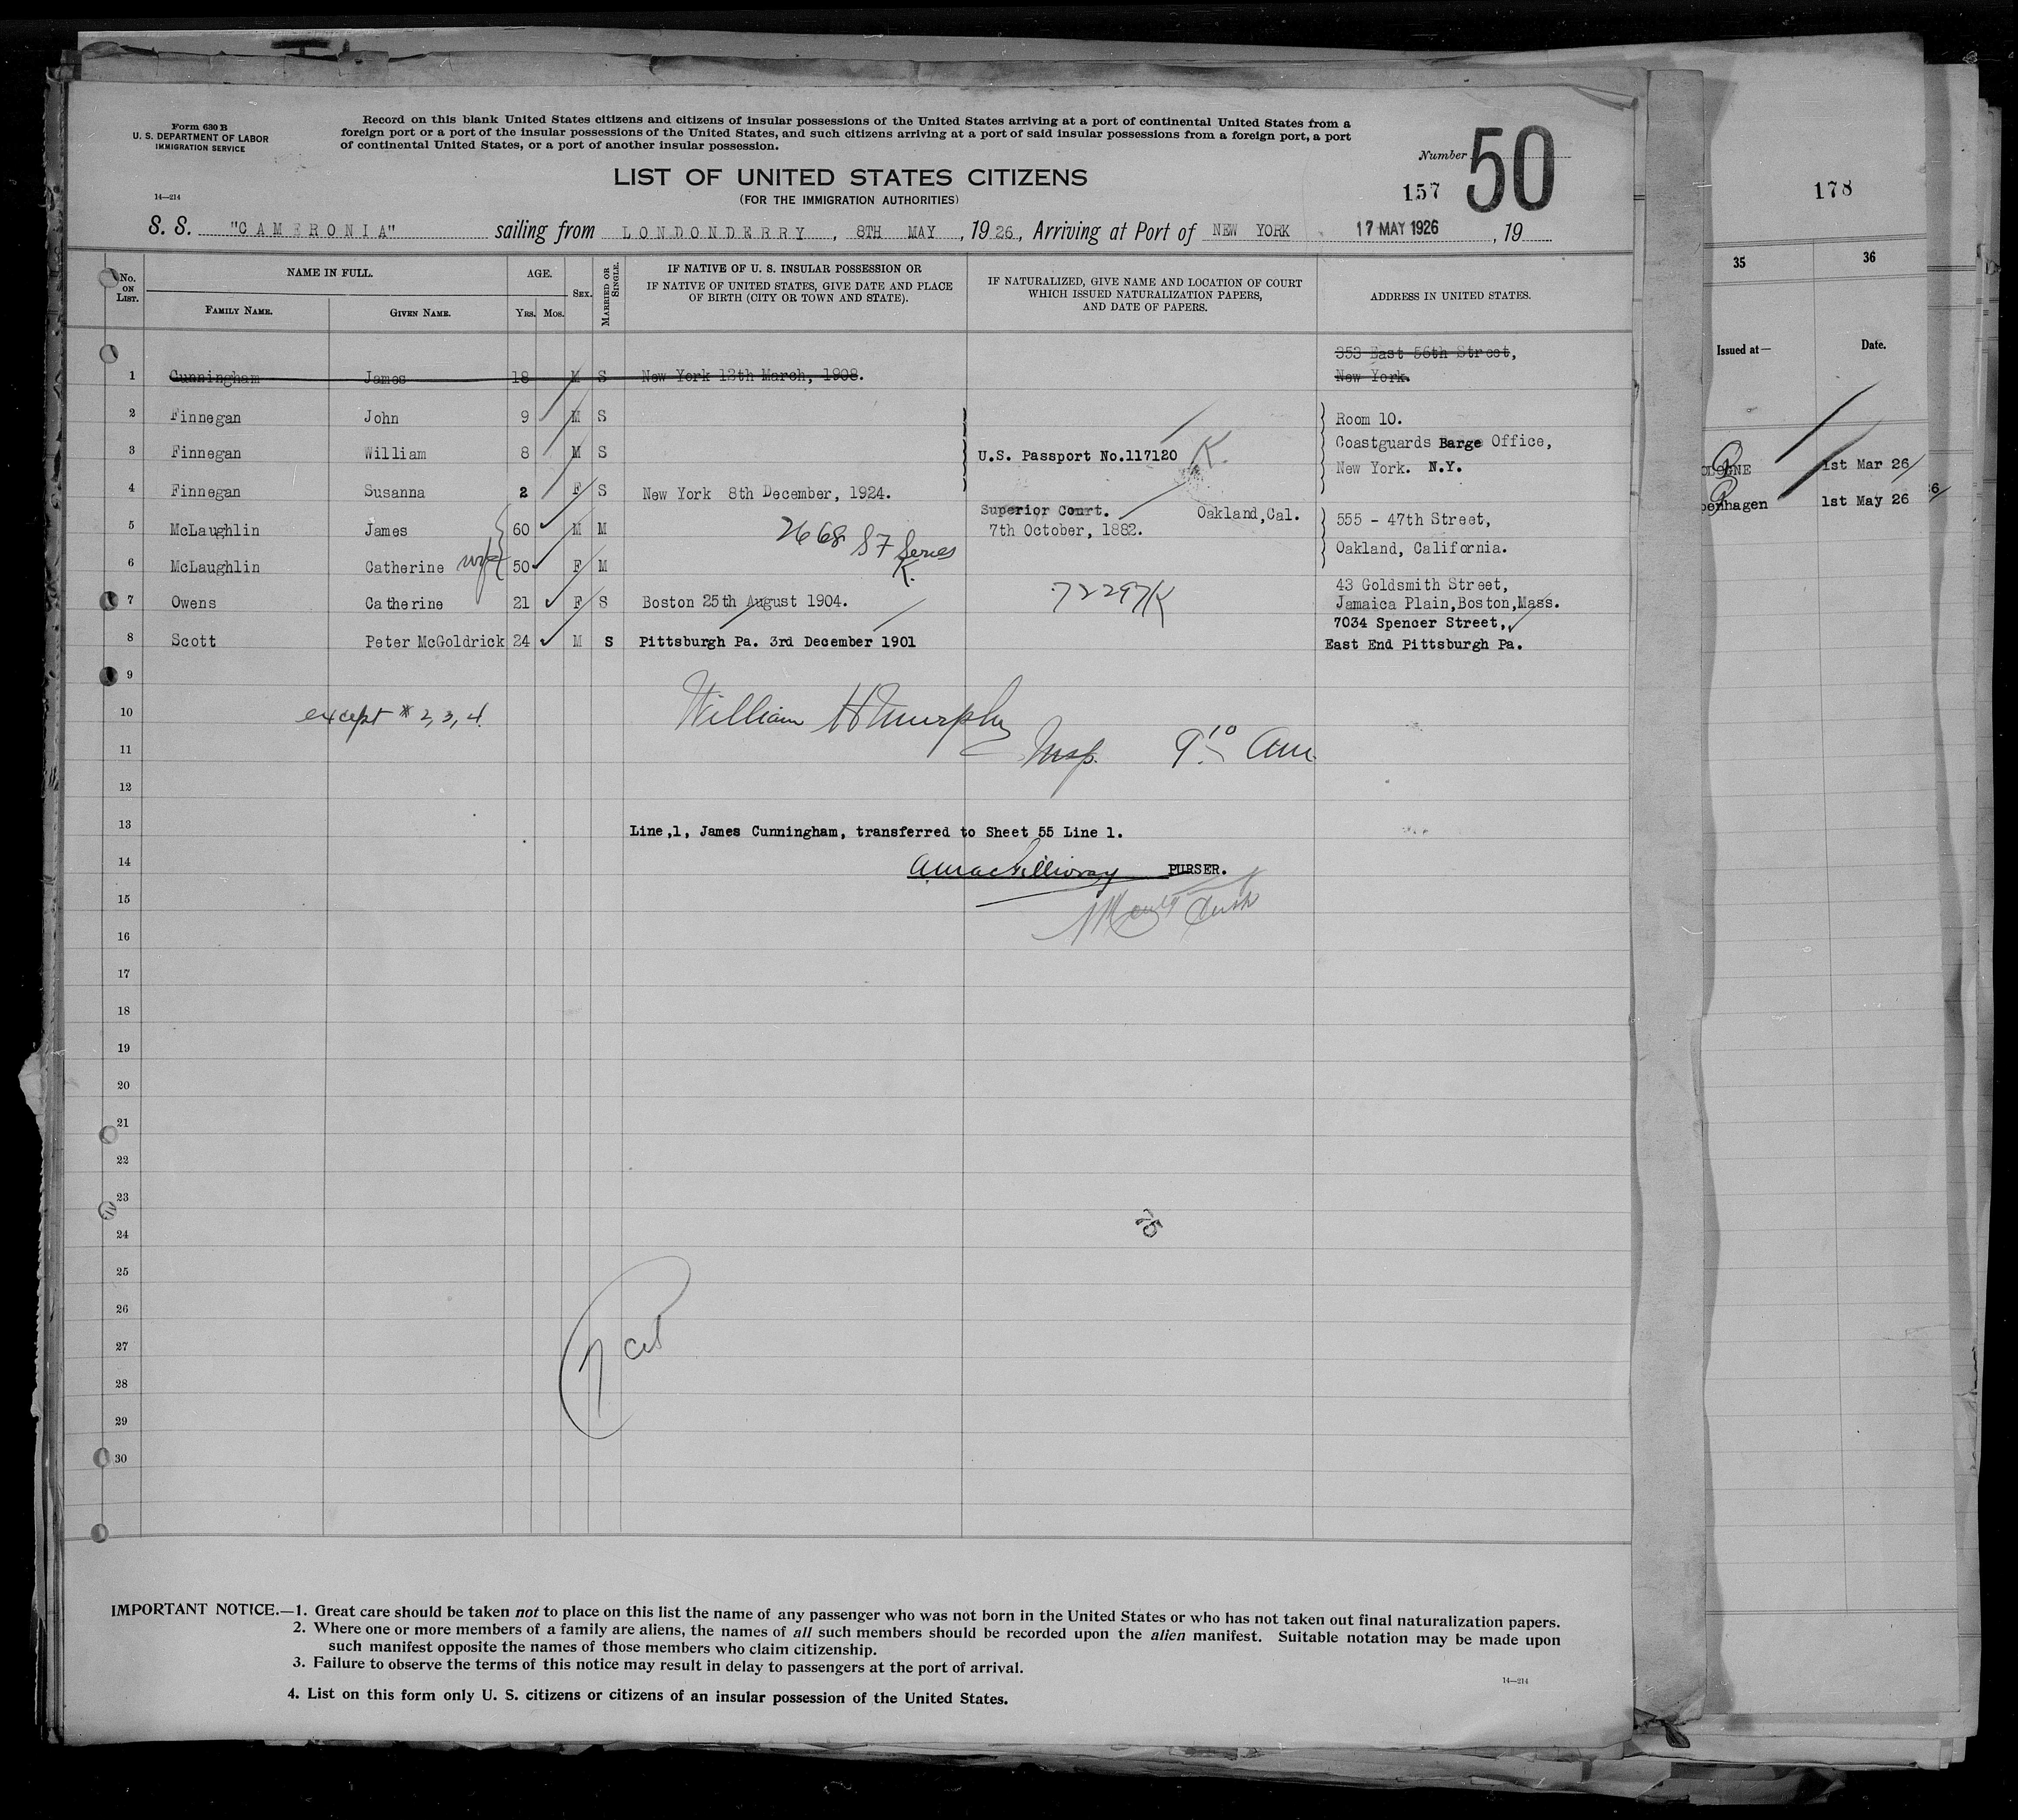 Form 630 B
U. S. DEPARTMENT OF LABOR
IMMIGRATION SERVICE
14—214
Record on this blank United States citizens and citizens of insular possessions of the United States arriving at a port of continental United States from a
foreign port or a port of the insular possessions of the United States, and such citizens arriving at a port of said insular possessions from a foreign port, a port
of continental United States, or a port of another insular possession.
LIST OF UNITED STATES CITIZENS
(FOR THE IMMIGRATION AUTHORITIES)
Number 50
157
S. S. "CAMERONIA" sailing from LONDONDERRY, 8TH MAY, 1926, Arriving at Port of NEW YORK 17 MAY 1926, 19
No. ON LIST.
NAME IN FULL.
FAMILY NAME.
GIVEN NAME.
AGE.
YRS. MOS.
SEX.
MARRIED OR SINGLE.
IF NATIVE OF U. S. INSULAR POSSESSION OR
IF NATIVE OF UNITED STATES, GIVE DATE AND PLACE
OF BIRTH (CITY OR TOWN AND STATE).
IF NATURALIZED, GIVE NAME AND LOCATION OF COURT
WHICH ISSUED NATURALIZATION PAPERS,
AND DATE OF PAPERS.
ADDRESS IN UNITED STATES.
353 East 56th Street,
1 Cunningham James 18 M S New York 12th March, 1908. New York.
2 Finnegan John 9 M S Room 10.
Coastguards Barge Office,
3 Finnegan William 8 M S U.S. Passport No.117120 K.
New York. N.Y.
4 Finnegan Susanna 2 F S New York 8th December, 1924.
Superior Court. Oakland,Cal.
5 McLaughlin James 60 M M 7th October, 1882. 555 - 47th Street,
2668 S7 Series K.
Oakland, California.
6 McLaughlin Catherine wife 50 F M
43 Goldsmith Street,
7 Owens Catherine 21 F S Boston 25th August 1904. 72297K Jamaica Plain,Boston,Mass.
7034 Spencer Street,
8 Scott Peter McGoldrick 24 M S Pittsburgh Pa. 3rd December 1901 East End Pittsburgh Pa.
9
10 except # 2, 3, 4. William H Murphy
11 Insp. 9.10 am
12
13 Line,1, James Cunningham, transferred to Sheet 55 Line 1.
14 PURSER.
15
16
17
18
19
20
21
22
23
24 75
25
26
27 7
28
29
30
IMPORTANT NOTICE.—1. Great care should be taken not to place on this list the name of any passenger who was not born in the United States or who has not taken out final naturalization papers.
2. Where one or more members of a family are aliens, the names of all such members should be recorded upon the alien manifest. Suitable notation may be made upon
such manifest opposite the names of those members who claim citizenship.
3. Failure to observe the terms of this notice may result in delay to passengers at the port of arrival.
4. List on this form only U. S. citizens or citizens of an insular possession of the United States.
14—214
178
35 36
Issued at— Date.
1st Mar 26
penhagen 1st May 26